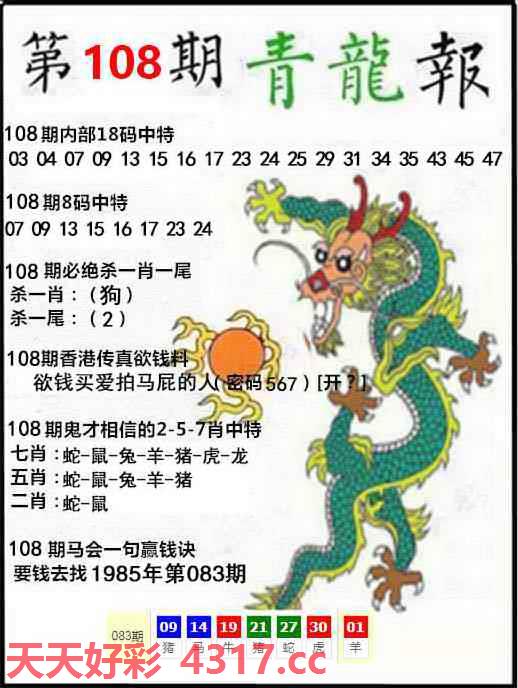 第108期 青龍報
108期内部18码中特
03 04 07 09 13 15 16 17 23 24 25 29 31 34 35 43 45 47
108期8码中特
07 09 13 15 16 17 23 24
108期必绝杀一肖一尾
杀一肖：（狗）
杀一尾：（2）
108期香港传真欲钱料
欲钱买爱拍马屁的人(密码567)[开?]
108期鬼才相信的2-5-7肖中特
七肖：蛇-鼠-兔-羊-猪-虎-龙
五肖：蛇-鼠-兔-羊-猪
二肖：蛇-鼠
108期马会一句赢钱诀
要钱去找1985年第083期
083期 09 14 19 21 27 30 01
猪 马 牛 猪 蛇 虎 羊
天天好彩 4317.cc